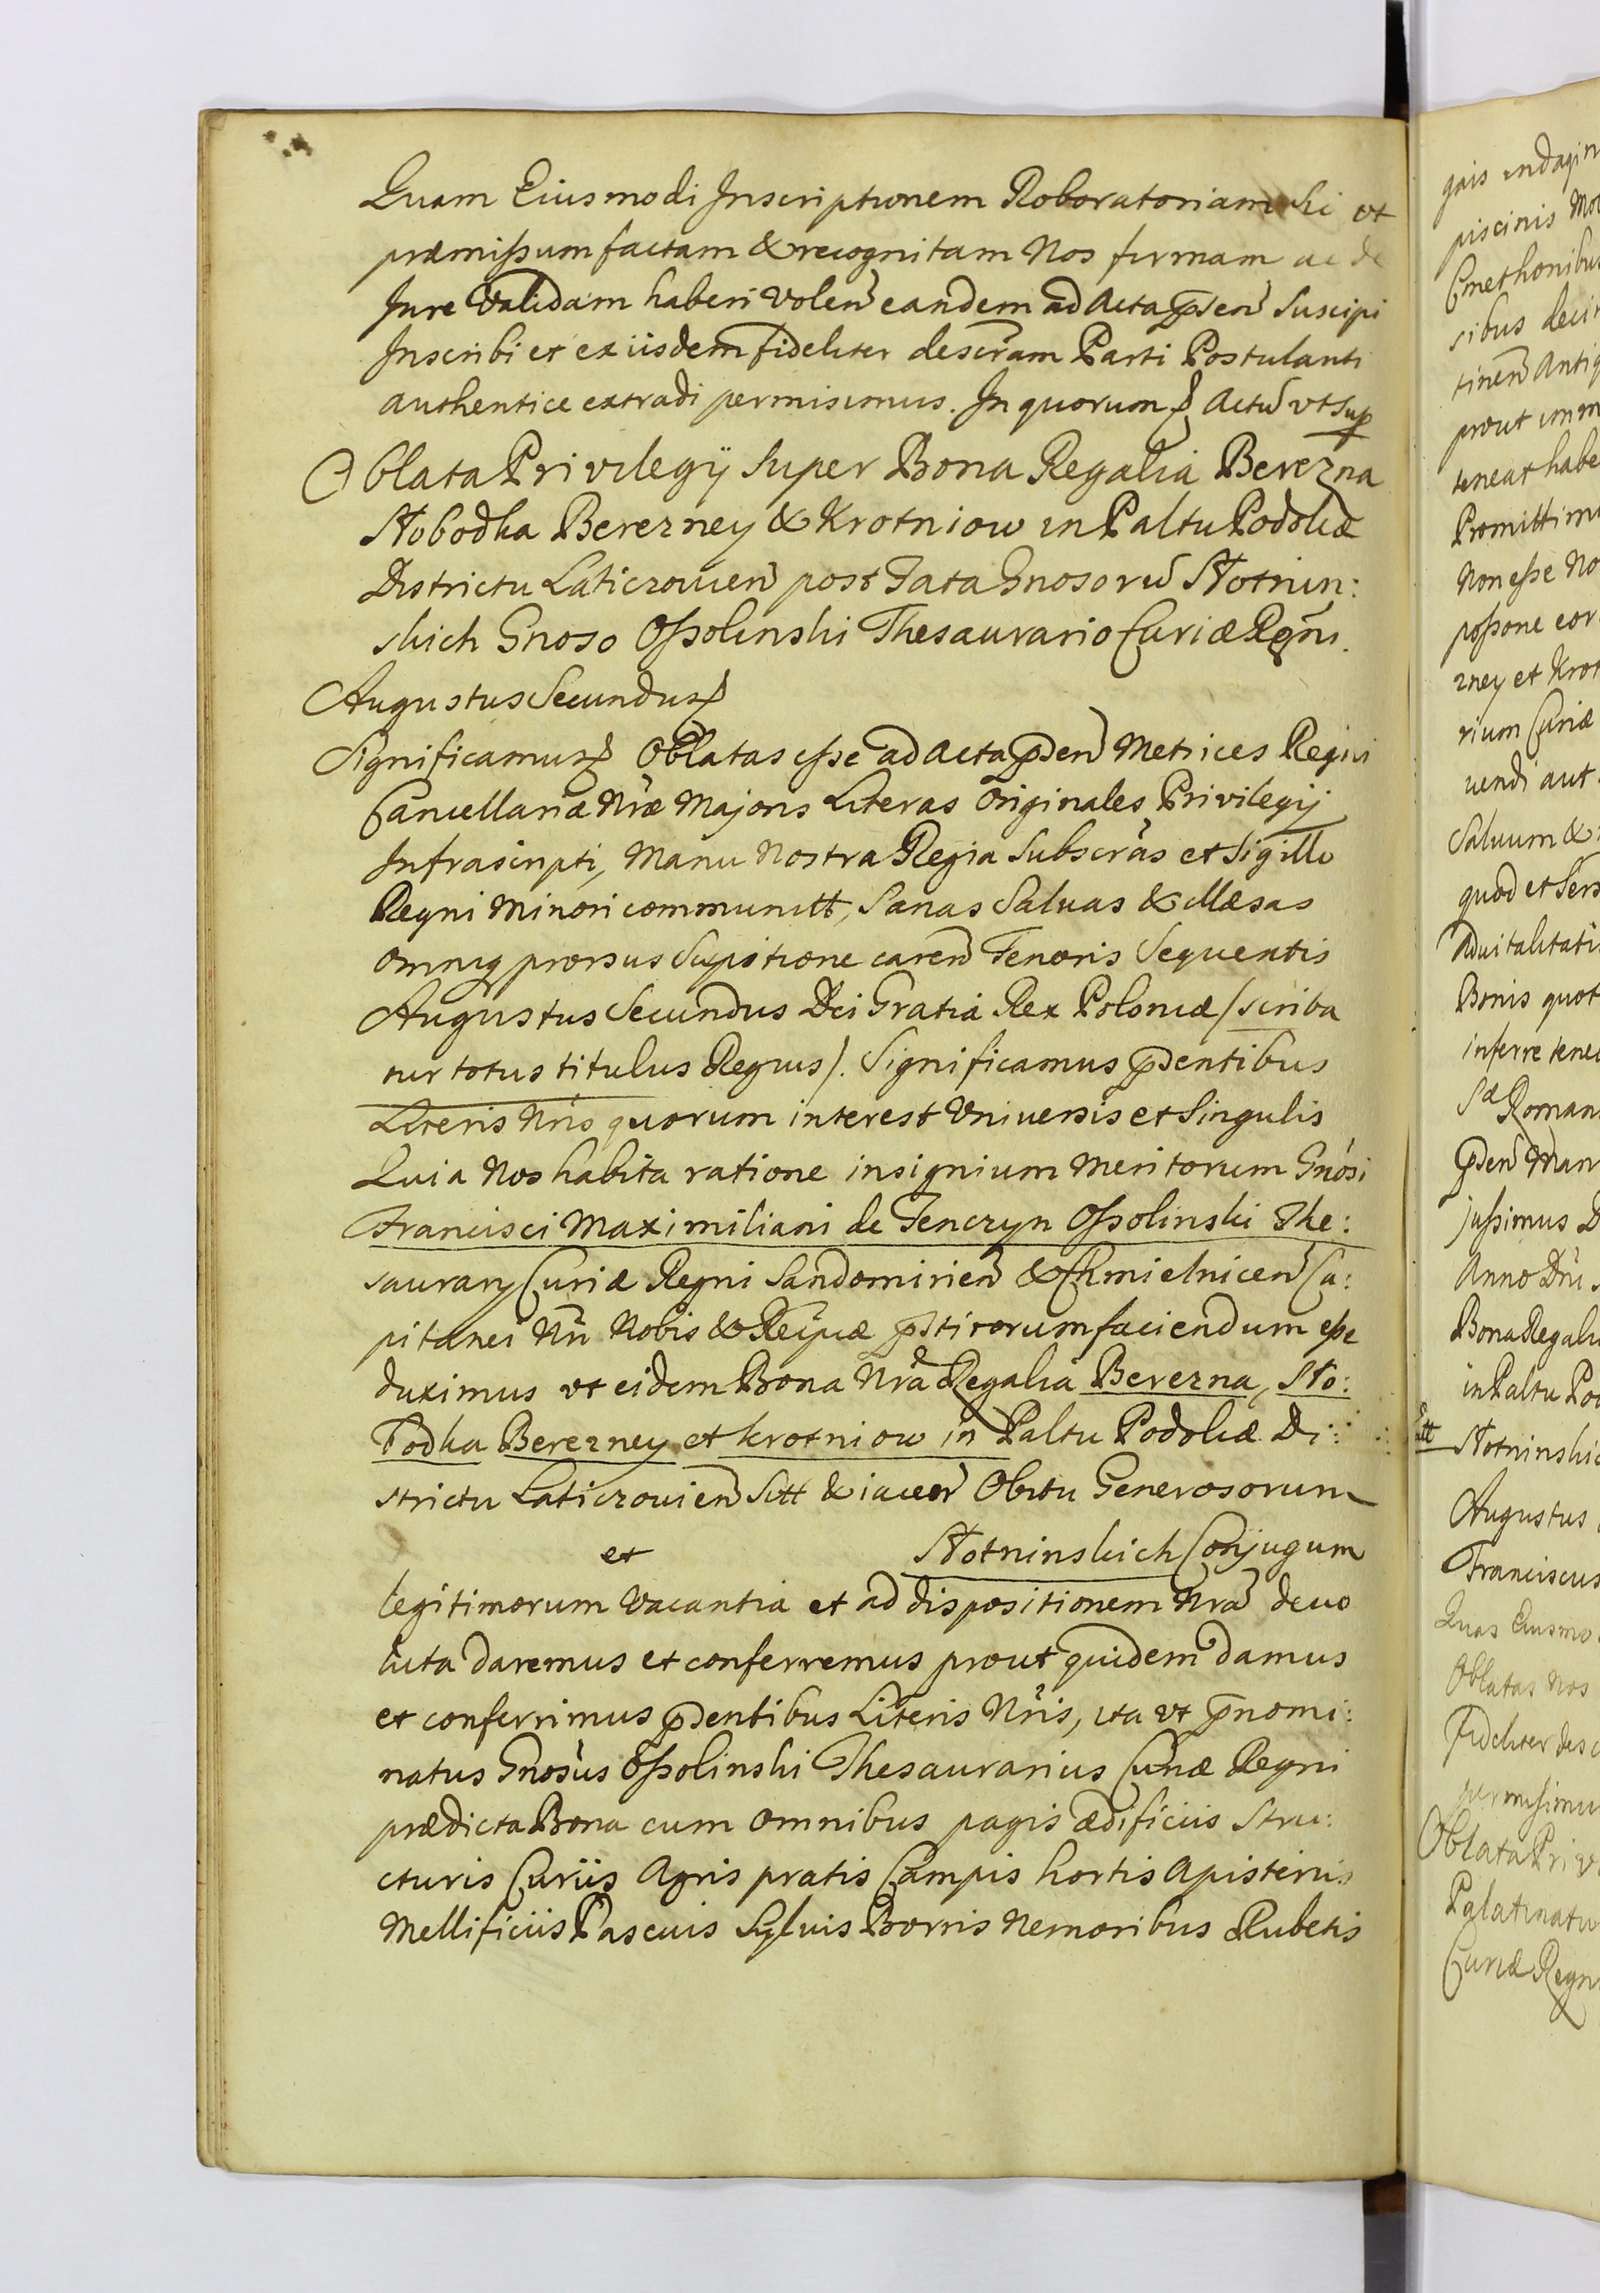 Quam Eiusmodi Inscriptionem Roboratoriam sic ut
præmissum factam & recognitam Nos firmam ac de
Jure Validam haberi Volen̄ eandem ad Acta p̄sen̄ Suscipi
Inscribi et ex iisdem fideliter descr̄am Parti Postulanti
authentice extradi permisimus. In quorum Actū vt sup
Oblata Privilegÿ Super Bona Regalia Berezna
Slobodka Berezney & Krotniow in Pal̄tu Podoliæ
Districtu Laticzouien̄ post Fata Gnosorū Slotnin:
skich Gnoso Ossolinski Thesaurario Curiæ Regn̄i.
Augustus Secundus
Significamus Oblatas esse ad Acta p̄sen̄ Metrices Regni
Cancellariæ Nr̄æ Majoris Literas Originales Privilegij
Infrascripti, Manu Nostra Regia Subscr̄as et Sigillo
Regni Minori communitt, Sanas Saluas & illæsas
omniq prorsus Suspitione caren̄ Tenoris Sequentis
Augustus Secundus Dei Gratia Rex Poloniæ /scriba
tur totus titulus Regius/. Significamus p̄sentibus
Literis Nr̄is quorum interest Vniuersis et Singulis
Quia Nos habita ratione insignium Meritorum Gnosi
Francisci Maximiliani de Tenczyn Ossolinski The:
saurarÿ Curiæ Regni Sandomirien̄ & Chmielnicen̄ Ca:
pitanei Nr̄i Nobis & Reipcæ p̄stitorum faciendum esse
duximus vt eidem Bona Nr̄a Regalia Berezna, Slo:
bodka Berezney et Krotniow in Pal̄tu Podoliæ Di:
strictu Laticzouien̄ Sitt & iacen̄ Obitu Generosorum
et Slotninskich Conjugum
legitimorum Vacantia et ad dispositionem Nr̄a deuo
luta daremus et conferremus prout quidem damus
et conferrimus p̄sentibus Literis Nr̄is, ita vt p̄nomi:
natus Gnosus Ossolinski Thesaurarius Curiæ Regni
prædicta Bona cum omnibus pagis ædificiis Stru:
cturis Curiis Agris pratis Campis hortis Apisteriis
Mellificiis Pascuis Syluis Borris Nemoribus Rubetis
piscinis
Cmethonibus
prout
Promittimus
Non esse
rney et
rium Curiæ
uendi aut
Saluum &
quod et
Bonis quot
inferre
jussimus
Anno Dni
Bona Regalia
in Pal̄tu
Slotninskich
Augustus
Franciscus
Oblatas Nos
fideliter
permisimus
Oblata
Palatinatu
Curiæ Regni